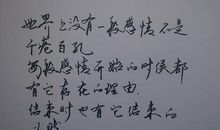 世界上没有一般感情不是
千疮百孔
每般感情开始的时候都
有它存在的理由.
结束时也有它结束的